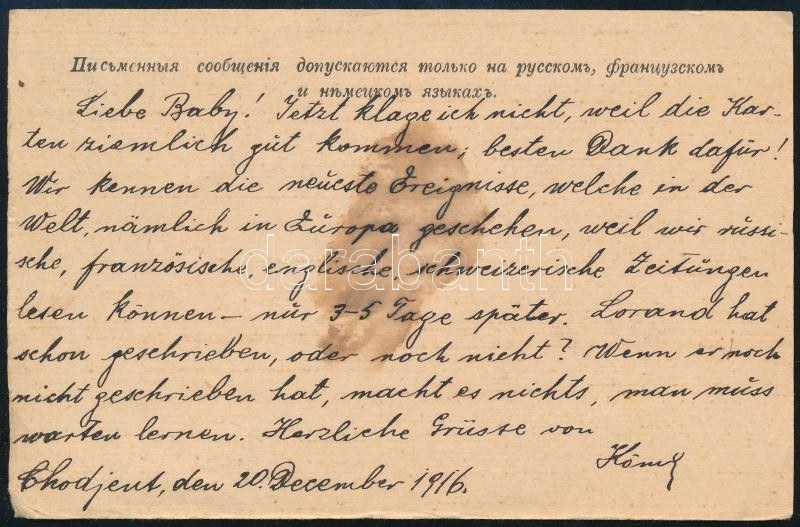 Письменныя сообщенія допускаются только на русскомъ, французскомъ
и нѣмецкомъ языкахъ.
Liebe Baby! Jetzt klage ich nicht, weil die Kar-
ten ziemlich gut kommen; besten Dank dafür!
Wir kennen die neueste Ereignisse, welche in der
Welt, nämlich in Europa geschehen, weil wir russi-
sche, französische, englische, schweizerische Zeitungen
lesen können – nur 3-5 Tage später. Lorand hat
schon geschrieben, oder noch nicht? Wenn er noch
nicht geschrieben hat, macht es nichts, man muss
warten lernen. Herzliche Grüsse von
Chodjent, den 20. December 1916.
darabanth